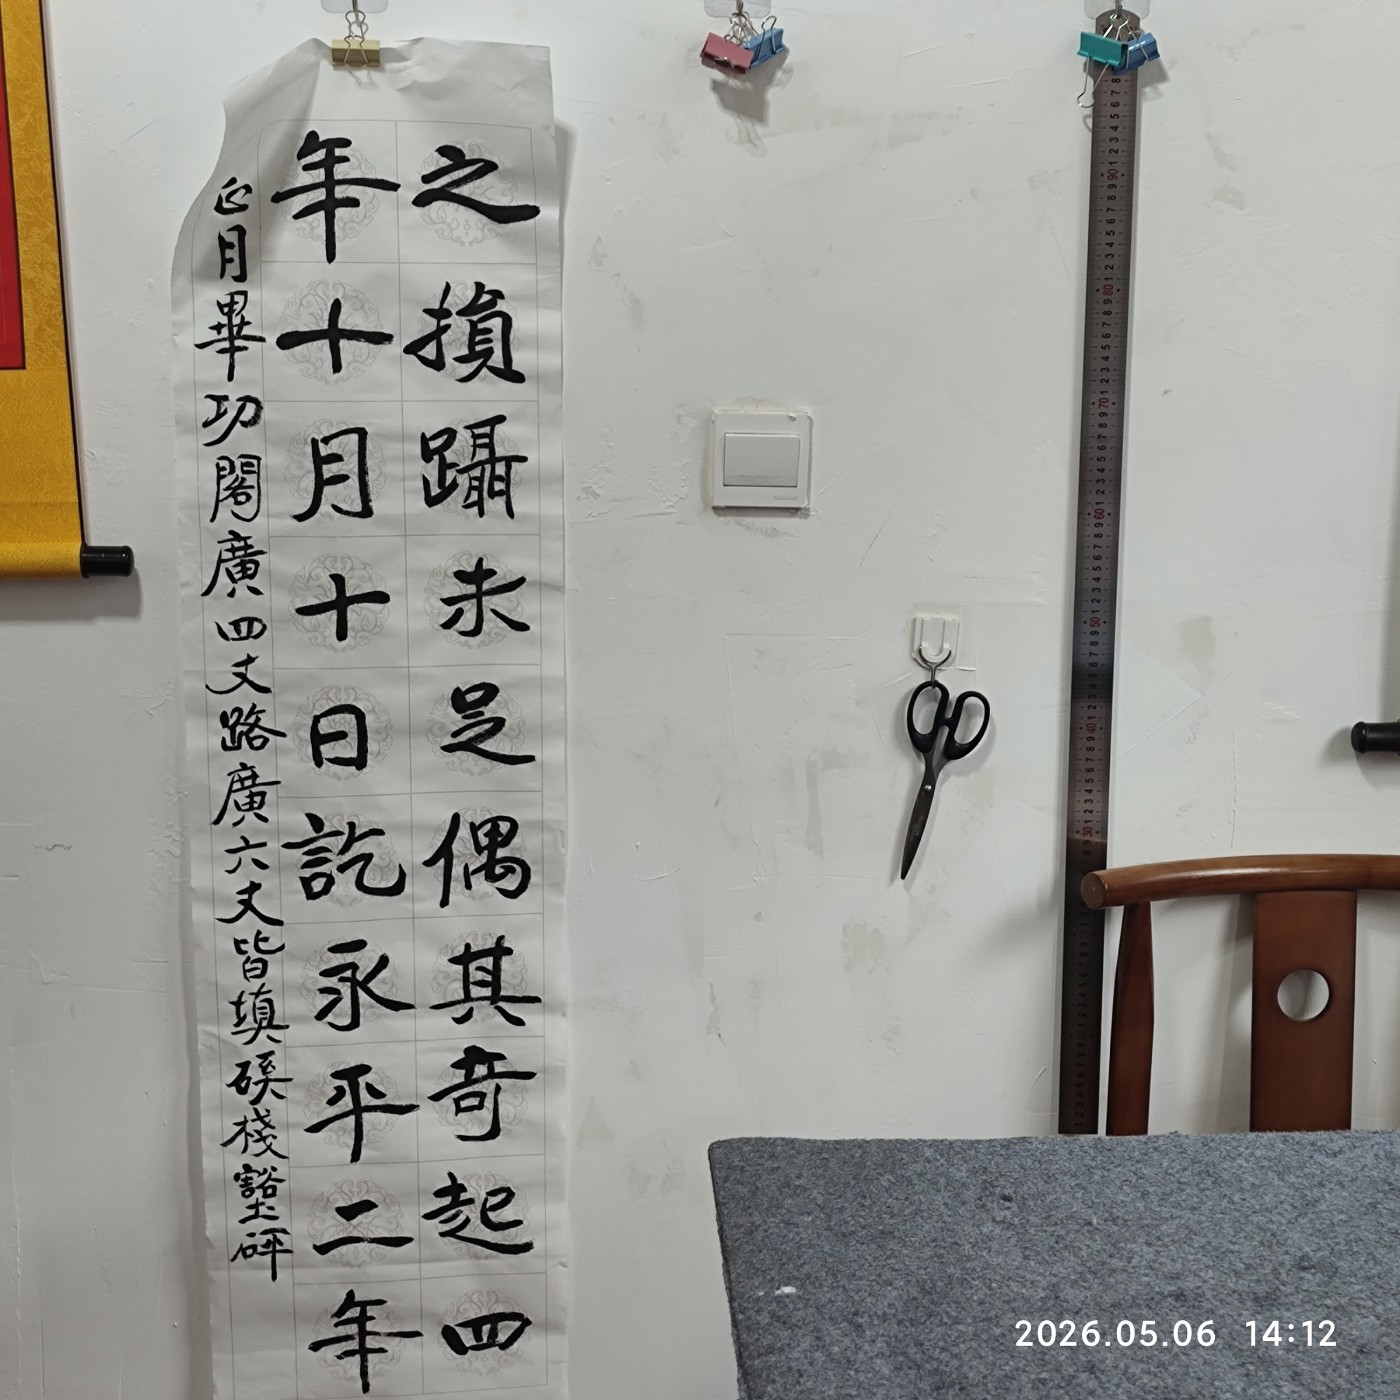 之損躡未足偶其奇起四
年十月十日訖永平二年
正月畢功閣廣四丈路廣六丈皆填磎棧壑砰
2026.05.06 14:12